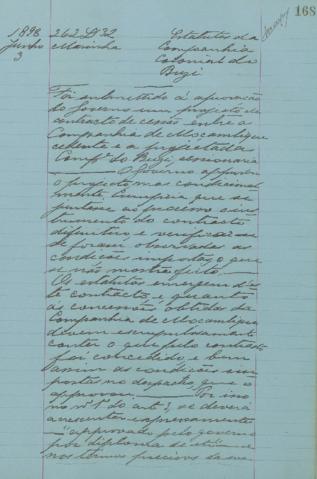 168
1898 262 L° 32 Estatutos da
Junho Marinha Companhia
3 Colonial do
Buzi
Foi submettido á approvação
do Governo um projecto de
contracto de cessão entre a
Companhia de Moçambique
cedente e a projectada
Comp.ª do Buzi, cessionaria
O Governo approvou
o projecto, mas condicional
mente. Cumpria que se
juntasse ao processo o ins
trumento do contracto
definitivo e verificar se
se foram observadas as
condições impostas, o que
se não mostra feito.
Os estatutos emergem d'es
te contracto, e quanto
ás concessões obtidas da
Companhia de Moçambique
devem escrupulosamente
conter o que pelo contracto
foi concedido, e bem
assim as condições im
postas no despacho, que o
approvou. Por isso
no n.º 1º do art. 3, se deverá
accrescentar expressamente
"approvado pelo governo
por diploma de
nos termos precisos